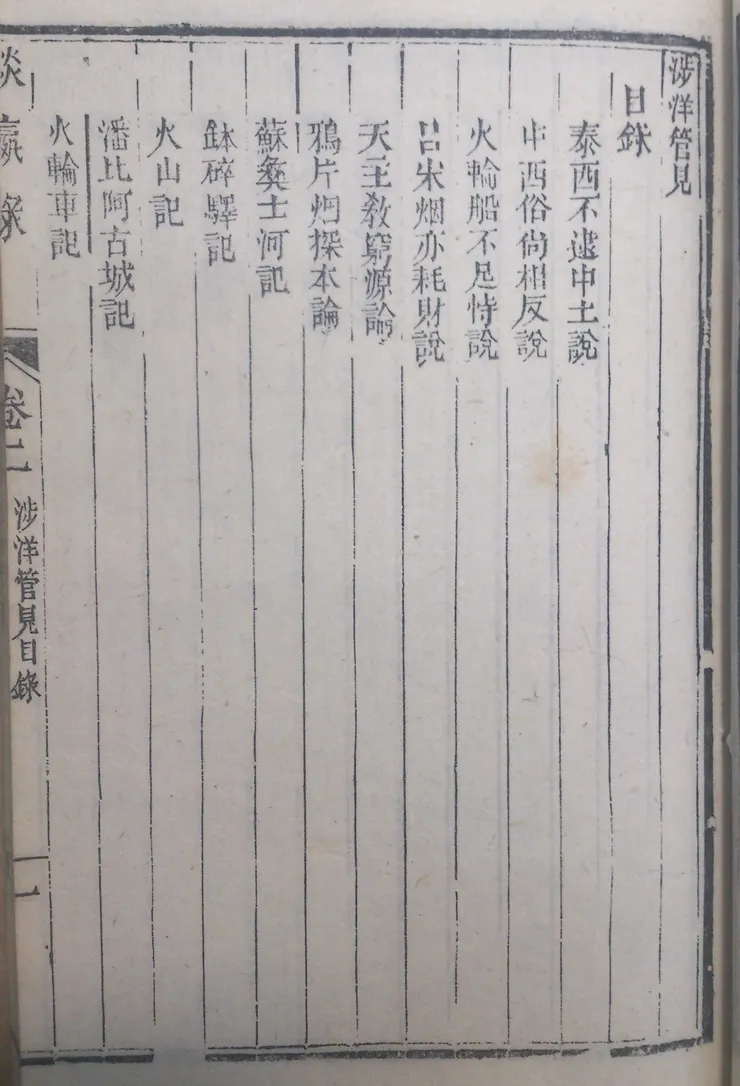 涉洋管見
目錄
泰西不逮中土說
中西俗尙相反說
火輪船不足恃說
呂宋烟亦耗財說
天主教窮源論
鴉片烟探本論
蘇彝士河記
鉢碎驛記
火山記
潘比阿古城記
火輪車記
談瀛錄
卷二
涉洋管見目錄
一